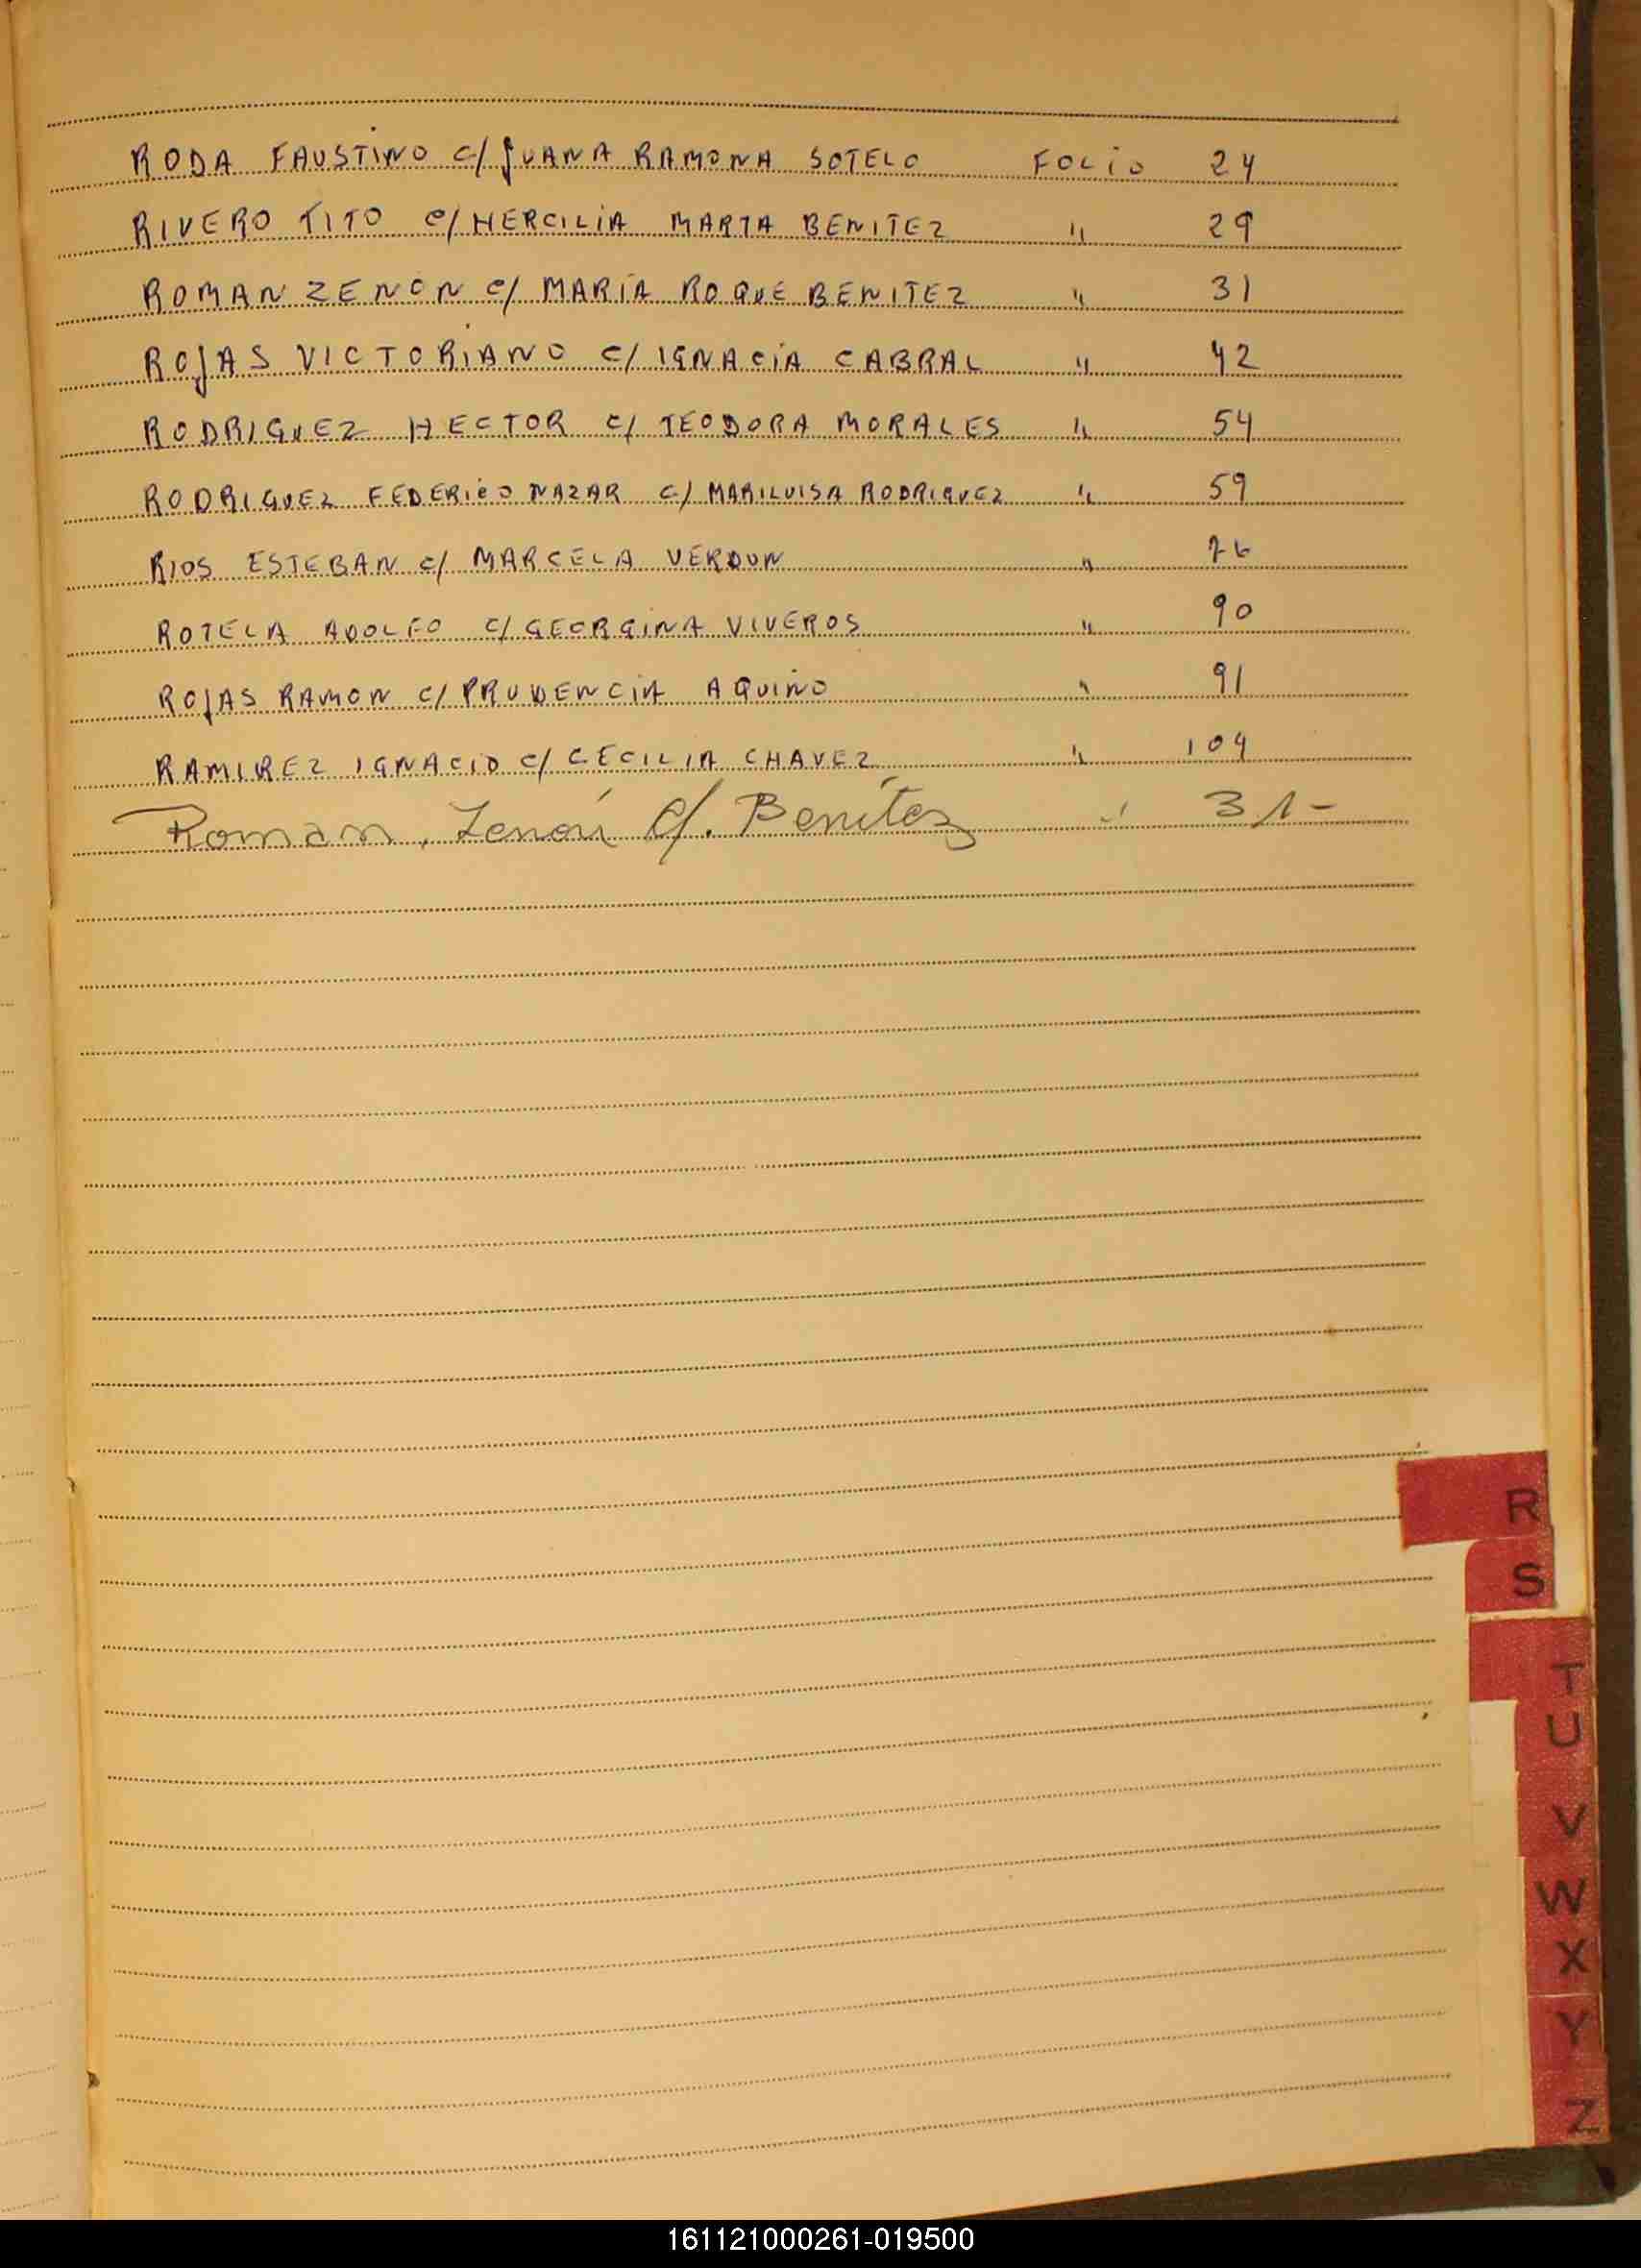 RODA FAUSTINO c/ JUANA RAMONA SOTELO FOLIO 24
RIVERO TITO c/ HERCILIA MARTA BENITEZ " 29
ROMAN ZENON c/ MARÍA ROQUE BENITEZ " 31
ROJAS VICTORIANO c/ IGNACIA CABRAL " 42
RODRIGUEZ HECTOR c/ TEODORA MORALES " 54
RODRIGUEZ FEDERICO NAZAR c/ MARILUISA RODRIGUEZ " 59
RIOS ESTEBAN c/ MARCELA VERDUN " 76
ROTELA ADOLFO c/ GEORGINA VIVEROS " 90
ROJAS RAMON c/ PRUDENCIA AQUINO " 91
RAMIREZ IGNACIO c/ CECILIA CHAVEZ " 104
Roman, Zenón c/. Benítez " 31-
R
S
T
U
V
W
X
Y
Z
161121000261-019500